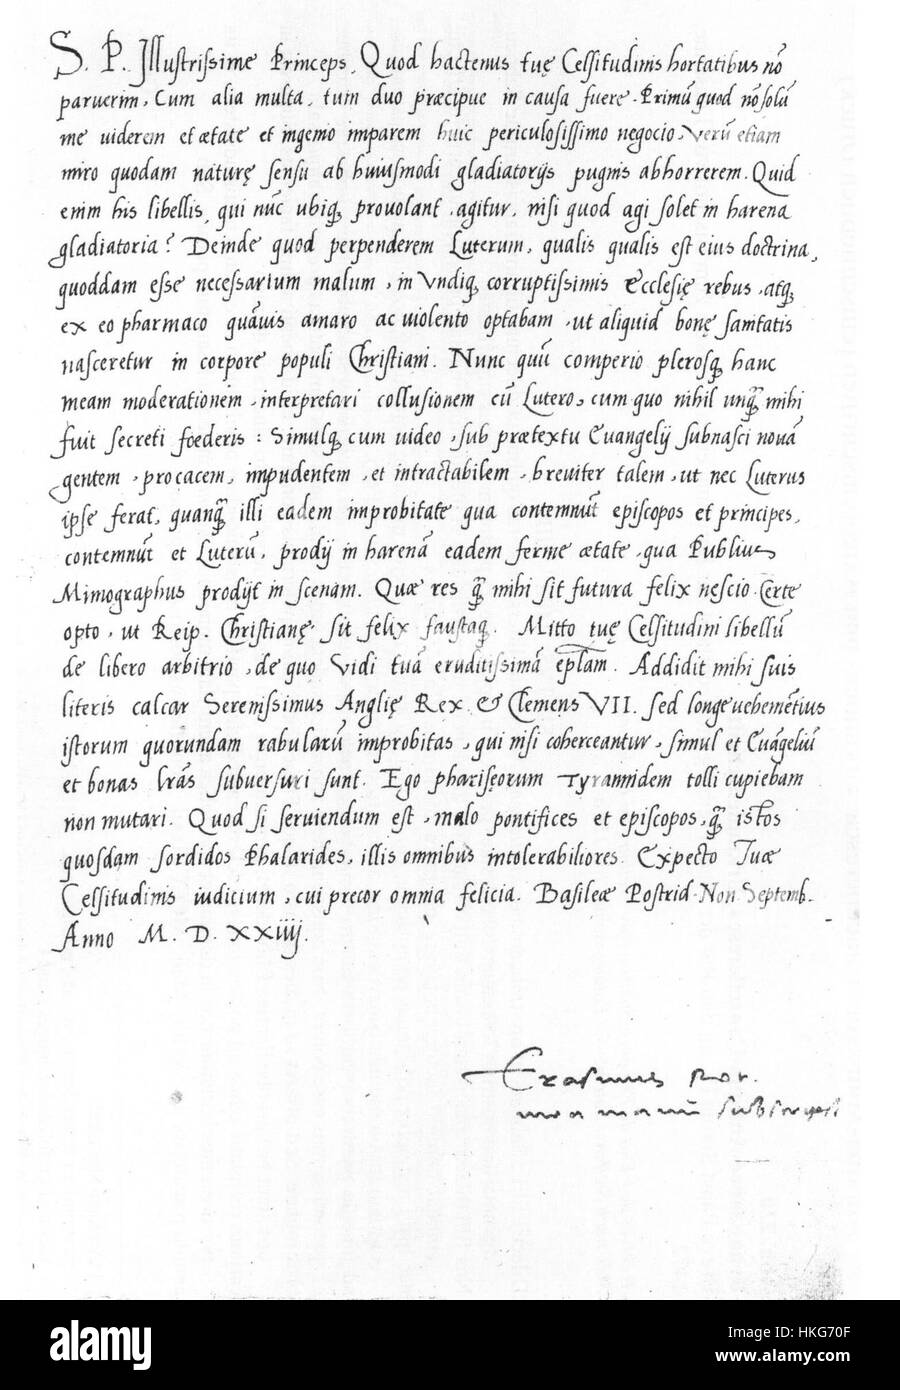 S. P. Illustrissime Princeps, Quod hactenus tuę Celsitudinis hortatibus nõ
paruerim, Cum alia multa, tum duo præcipue in causa fuere. Primũ quod nõ solũ
me uiderem et ætate et ingenio imparem huic periculosissimo negocio, Verũ etiam
miro quodam naturę sensu ab huiusmodi gladiatorijs pugnis abhorrerem. Quid
enim his libellis, qui nũc ubiq; prouolant, agitur, nisi quod agi solet in harena
gladiatoria? Deinde quod perpenderem Luterum, qualis qualis est eius doctrina,
quoddam esse necessarium malum, in Vndiq; corruptissimis Ecclesię rebus, atq;
ex eo pharmaco quãuis amaro ac uiolento optabam, ut aliquid bonę sanitatis
nasceretur in corpore populi Christiani. Nunc quũ comperio plerosq; hanc
meam moderationem, interpretari collusionem cũ Lutero, cum quo nihil unq̃ mihi
fuit secreti foederis: Simulq; cum uideo, sub prætextu Euangelij subnasci nouã
gentem, procacem, impudentem, et intractabilem, breuiter talem, ut nec Luterus
ipse ferat, quanq̃ illi eadem improbitate qua contemnũt episcopos et principes,
contemnũt et Luterũ, prodij in harenã eadem ferme ætate, qua Publius
Mimographus prodijt in scenam. Quæ res q̃ mihi sit futura felix nęscio. Certe
opto, ut Reip. Christianę sit felix faustaq;. Mitto tuę Celsitudini libellũ
de libero arbitrio, de quo Vidi tuã eruditissimã ep̃lam. Addidit mihi suis
literis calcar Serenissimus Anglię Rex & Clemens VII. sed longe uehemẽtius
istorum quorundam rabularũ improbitas, qui nisi coherceantur, simul et Euãgeliũ
et bonas lr̃as subuersuri sunt. Ego pharisęorum Tyrannidem tolli cupiebam
non mutari. Quod si seruiendum est, malo pontifices et episcopos, q̃ istos
quosdam sordidos Phalarides, illis omnibus intolerabiliores. Expecto Tuæ
Celsitudinis iudicium, cui precor omnia felicia. Basileæ Postrid. Non. Septemb.
Anno M. D. XXiiij.
Erasmus Rot.
mea manu subscripsi
alamy
Image ID: HKG70F
www.alamy.com